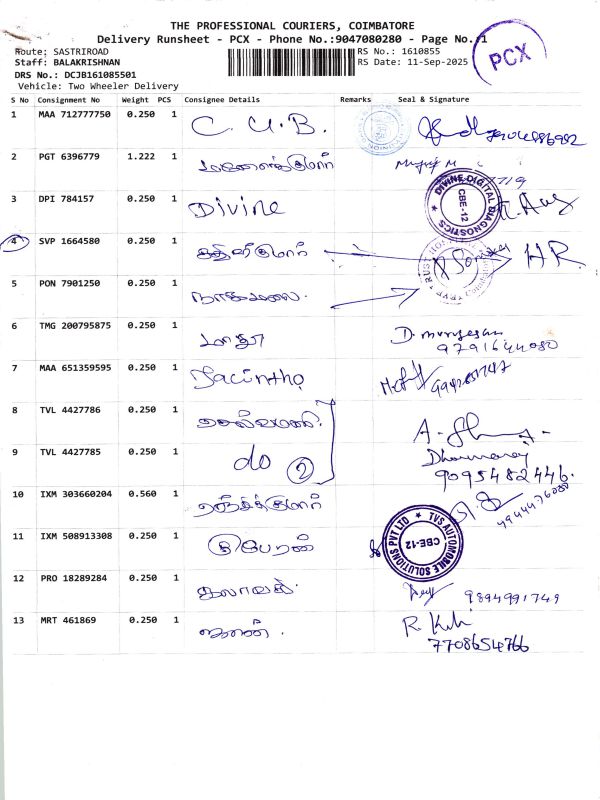 THE PROFESSIONAL COURIERS, COIMBATORE
Delivery Runsheet - PCX - Phone No.:9047080280 - Page No.:1
PCX
Route: SASTRIROAD
RS No.: 1610855
Staff: BALAKRISHNAN
RS Date: 11-Sep-2025
DRS No.: DCJB161085501
Vehicle: Two Wheeler Delivery
S No Consignment No Weight PCS Consignee Details Remarks Seal & Signature
1 MAA 712777750 0.250 1 C. U. B.
2 PGT 6396779 1.222 1
3 DPI 784157 0.250 1 Divine
DIVINE DIGITAL DIAGNOSTICS CBE-12
4 SVP 1664580 0.250 1 HR.
5 PON 7901250 0.250 1
6 TMG 200795875 0.250 1 மாதா D. Murugesan
9791644080
7 MAA 651359595 0.250 1 Jacintha
8 TVL 4427786 0.250 1 செல்வமணி.
9 TVL 4427785 0.250 1 do 2 Dharmaraj
9095482446.
10 IXM 303660204 0.560 1 ரஞ்சித்குமார்
11 IXM 508913308 0.250 1
TVS AUTOMOBILE SOLUTIONS PVT LTD CBE-12
12 PRO 18289284 0.250 1 கலாவதி. 9894991749
13 MRT 461869 0.250 1
7708654766